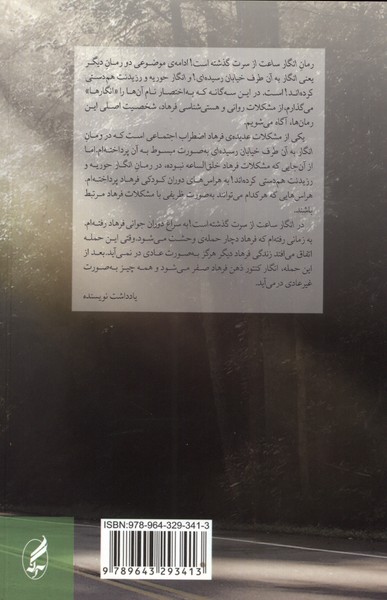 رمان انگار ساعت از سرت گذشته است! ادامه‌ی موضوعی دو رمان دیگر
یعنی انگار به آن طرف خیابان رسیده‌ای! و انگار حوریه و رزیدنت هم‌دستی
کرده‌اند! است. در این سه‌گانه که به‌اختصار نام آن‌ها را «انگارها»
می‌گذارم، از مشکلات روانی و هستی‌شناسی فرهاد، شخصیت اصلی این
رمان‌ها، آگاه می‌شویم.
یکی از مشکلات عدیده‌ی فرهاد اضطراب اجتماعی است که در رمان
انگار به آن طرف خیابان رسیده‌ای به‌صورت مبسوط به آن پرداخته‌ام. اما
از آن‌جایی که مشکلات فرهاد خلق‌الساعه نبوده، در رمان انگار حوریه و
رزیدنت هم‌دستی کرده‌اند! به هراس‌های دوران کودکی فرهاد پرداخته‌ام.
هراس‌هایی که هرکدام می‌توانند به‌صورت ظریفی با مشکلات فرهاد مرتبط
باشند.
در انگار ساعت از سرت گذشته است! به سراغ دوران جوانی فرهاد رفته‌ام.
به زمانی رفته‌ام که فرهاد دچار حمله‌ی وحشت می‌شود. وقتی این حمله
اتفاق می‌افتد، زندگی فرهاد دیگر هرگز به‌صورت عادی در نمی‌آید. بعد از
این حمله، انگار کنتور ذهن فرهاد صفر می‌شود و همه چیز به‌صورت
غیرعادی در می‌آید.
یادداشت نویسنده
ISBN: 978-964-329-341-3
9 789643 293413
آگه